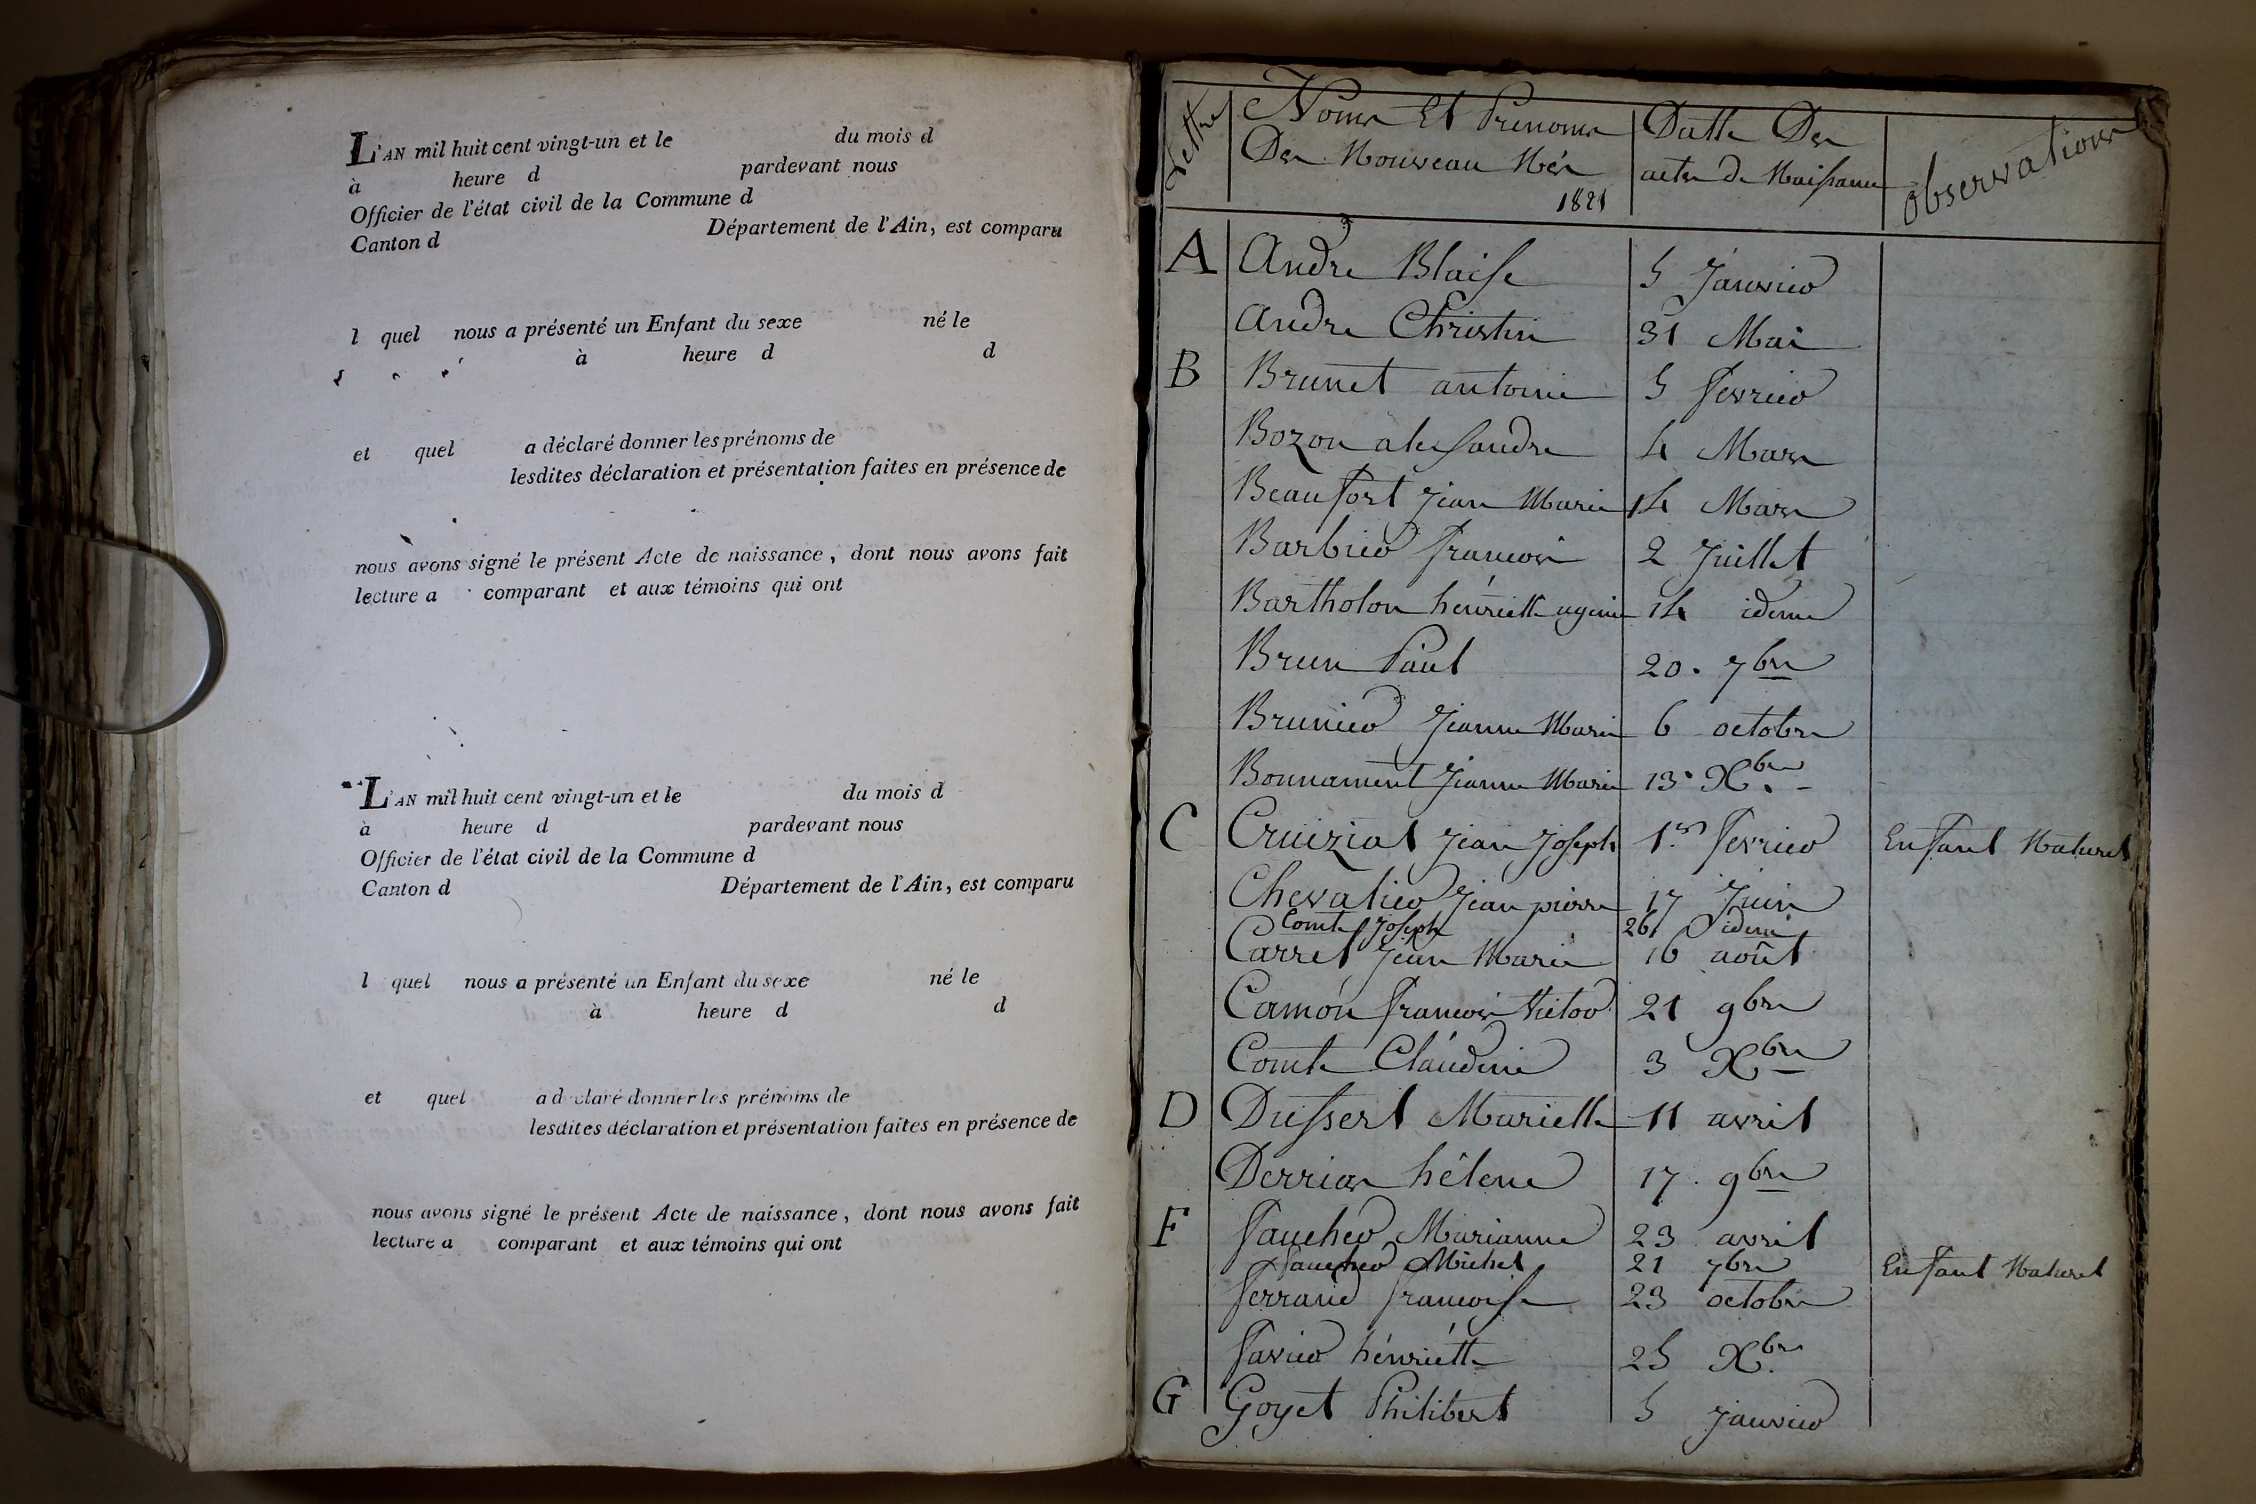 L'AN mil huit cent vingt-un et le du mois d
à heure d pardevant nous
Officier de l'état civil de la Commune d
Canton d Département de l'Ain, est comparu
l quel nous a présenté un Enfant du sexe né le
à heure d d
et quel a déclaré donner les prénoms de
lesdites déclaration et présentation faites en présence de
nous avons signé le présent Acte de naissance, dont nous avons fait
lecture a comparant et aux témoins qui ont
L'AN mil huit cent vingt-un et le du mois d
à heure d pardevant nous
Officier de l'état civil de la Commune d
Canton d Département de l'Ain, est comparu
l quel nous a présenté un Enfant du sexe né le
à heure d d
et quel a déclaré donner les prénoms de
lesdites déclaration et présentation faites en présence de
nous avons signé le présent Acte de naissance, dont nous avons fait
lecture a comparant et aux témoins qui ont
Lettres Noms Et Prenoms Datte Des observations
Des Nouveau Nés actes de Naissance
1821
A André Blaise 5 Janvier
André Christin 31 Mai
B Brunet antoine 5 fevrier
Bozon alesandre 4 Mars
Beaufort jean Marie 14 Mars
Barbier francois 2 Juillet
Bartholon hénriette 14 idem
Brun Paul 20. 7bre
Brunier Jeanne Marie 6 octobre
Bonnament Jeanne Marie 13. Xbre
C Cruizial Jean Joseph 1er fevrier Enfant Naturel
Chevalier Jean pierre 17 Juin
Comte Joseph 26 idem
Carret Jean Marie 16 août
Camon francois Victor 21 9bre
Comte Claudine 3 Xbre
D Dussert Mariette 11 avril
Derrias hélene 17. 9bre
F faucher Marianne 23 avril
faucher Michel 21 7bre Enfant Naturel
ferrand francoise 23 octobre
favier hénriette 25 Xbre
G Goyet Philibert 5 Janvier